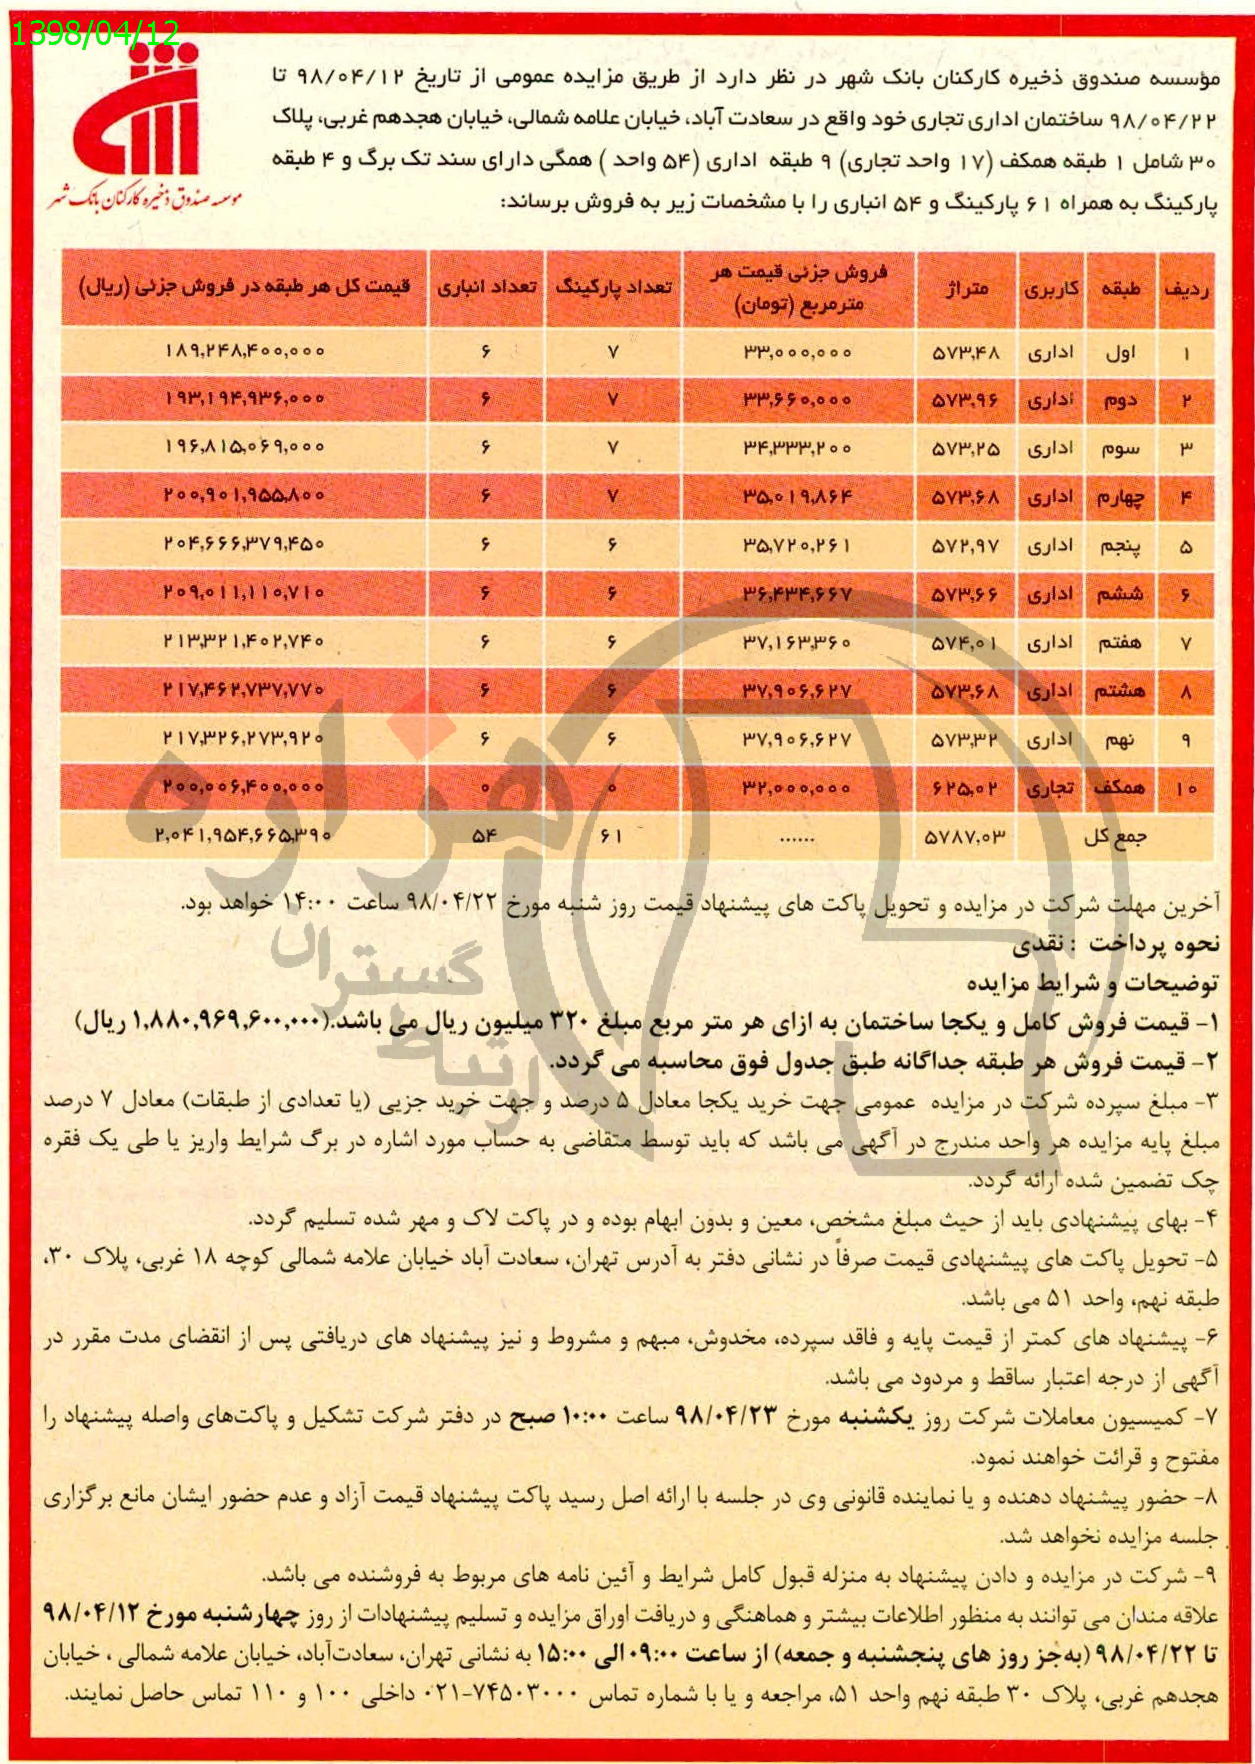 1398/04/12
موسسه صندوق ذخیره کارکنان بانک شهر
مؤسسه صندوق ذخیره کارکنان بانک شهر در نظر دارد از طریق مزایده عمومی از تاریخ ۹۸/۰۴/۱۲ تا
۹۸/۰۴/۲۲ ساختمان اداری تجاری خود واقع در سعادت آباد، خیابان علامه شمالی، خیابان هجدهم غربی، پلاک
۳۰ شامل ۱ طبقه همکف (۱۷ واحد تجاری) ۹ طبقه اداری (۵۴ واحد ) همگی دارای سند تک برگ و ۴ طبقه
پارکینگ به همراه ۶۱ پارکینگ و ۵۴ انباری را با مشخصات زیر به فروش برساند:
ردیف طبقه کاربری متراژ فروش جزئی قیمت هر مترمربع (تومان) تعداد پارکینگ تعداد انباری قیمت کل هر طبقه در فروش جزئی (ریال)
۱ اول اداری ۵۷۳,۴۸ ۳۳,۰۰۰,۰۰۰ ۷ ۶ ۱۸۹,۲۴۸,۴۰۰,۰۰۰
۲ دوم اداری ۵۷۳,۹۶ ۳۳,۶۶۰,۰۰۰ ۷ ۶ ۱۹۳,۱۹۴,۹۳۶,۰۰۰
۳ سوم اداری ۵۷۳,۲۵ ۳۴,۳۳۳,۲۰۰ ۷ ۶ ۱۹۶,۸۱۵,۰۶۹,۰۰۰
۴ چهارم اداری ۵۷۳,۶۸ ۳۵,۰۱۹,۸۶۴ ۷ ۶ ۲۰۰,۹۰۱,۹۵۵,۸۰۰
۵ پنجم اداری ۵۷۲,۹۷ ۳۵,۷۲۰,۲۶۱ ۶ ۶ ۲۰۴,۶۶۶,۳۷۹,۴۵۰
۶ ششم اداری ۵۷۳,۶۶ ۳۶,۴۳۴,۶۶۷ ۶ ۶ ۲۰۹,۰۱۱,۱۱۰,۷۱۰
۷ هفتم اداری ۵۷۴,۰۱ ۳۷,۱۶۳,۳۶۰ ۶ ۶ ۲۱۳,۳۲۱,۴۰۲,۷۴۰
۸ هشتم اداری ۵۷۳,۶۸ ۳۷,۹۰۶,۶۲۷ ۶ ۶ ۲۱۷,۴۶۲,۷۳۷,۷۷۰
۹ نهم اداری ۵۷۳,۳۲ ۳۷,۹۰۶,۶۲۷ ۶ ۶ ۲۱۷,۳۲۶,۲۷۳,۹۲۰
۱۰ همکف تجاری ۶۲۵,۰۲ ۳۲,۰۰۰,۰۰۰ ۰ ۰ ۲۰۰,۰۰۶,۴۰۰,۰۰۰
جمع کل ۵۷۸۷,۰۳ ...... ۶۱ ۵۴ ۲,۰۴۱,۹۵۴,۶۶۵,۳۹۰
هزاره
گستران
ارتباط
آخرین مهلت شرکت در مزایده و تحویل پاکت های پیشنهاد قیمت روز شنبه مورخ ۹۸/۰۴/۲۲ ساعت ۱۴:۰۰ خواهد بود.
نحوه پرداخت : نقدی
توضیحات و شرایط مزایده
۱- قیمت فروش کامل و یکجا ساختمان به ازای هر متر مربع مبلغ ۳۲۰ میلیون ریال می باشد.(۱,۸۸۰,۹۶۹,۶۰۰,۰۰۰ ریال)
۲- قیمت فروش هر طبقه جداگانه طبق جدول فوق محاسبه می گردد.
۳- مبلغ سپرده شرکت در مزایده عمومی جهت خرید یکجا معادل ۵ درصد و جهت خرید جزیی (یا تعدادی از طبقات) معادل ۷ درصد
مبلغ پایه مزایده هر واحد مندرج در آگهی می باشد که باید توسط متقاضی به حساب مورد اشاره در برگ شرایط واریز یا طی یک فقره
چک تضمین شده ارائه گردد.
۴- بهای پیشنهادی باید از حیث مبلغ مشخص، معین و بدون ابهام بوده و در پاکت لاک و مهر شده تسلیم گردد.
۵- تحویل پاکت های پیشنهادی قیمت صرفاً در نشانی دفتر به آدرس تهران، سعادت آباد خیابان علامه شمالی کوچه ۱۸ غربی، پلاک ۳۰،
طبقه نهم، واحد ۵۱ می باشد.
۶- پیشنهاد های کمتر از قیمت پایه و فاقد سپرده، مخدوش، مبهم و مشروط و نیز پیشنهاد های دریافتی پس از انقضای مدت مقرر در
آگهی از درجه اعتبار ساقط و مردود می باشد.
۷- کمیسیون معاملات شرکت روز یکشنبه مورخ ۹۸/۰۴/۲۳ ساعت ۱۰:۰۰ صبح در دفتر شرکت تشکیل و پاکت‌های واصله پیشنهاد را
مفتوح و قرائت خواهند نمود.
۸- حضور پیشنهاد دهنده و یا نماینده قانونی وی در جلسه با ارائه اصل رسید پاکت پیشنهاد قیمت آزاد و عدم حضور ایشان مانع برگزاری
جلسه مزایده نخواهد شد.
۹- شرکت در مزایده و دادن پیشنهاد به منزله قبول کامل شرایط و آئین نامه های مربوط به فروشنده می باشد.
علاقه مندان می توانند به منظور اطلاعات بیشتر و هماهنگی و دریافت اوراق مزایده و تسلیم پیشنهادات از روز چهارشنبه مورخ ۹۸/۰۴/۱۲
تا ۹۸/۰۴/۲۲ (به‌جز روز های پنجشنبه و جمعه) از ساعت ۰۹:۰۰ الی ۱۵:۰۰ به نشانی تهران، سعادت‌آباد، خیابان علامه شمالی ، خیابان
هجدهم غربی، پلاک ۳۰ طبقه نهم واحد ۵۱، مراجعه و یا با شماره تماس ۷۴۵۰۳۰۰۰-۰۲۱ داخلی ۱۰۰ و ۱۱۰ تماس حاصل نمایند.